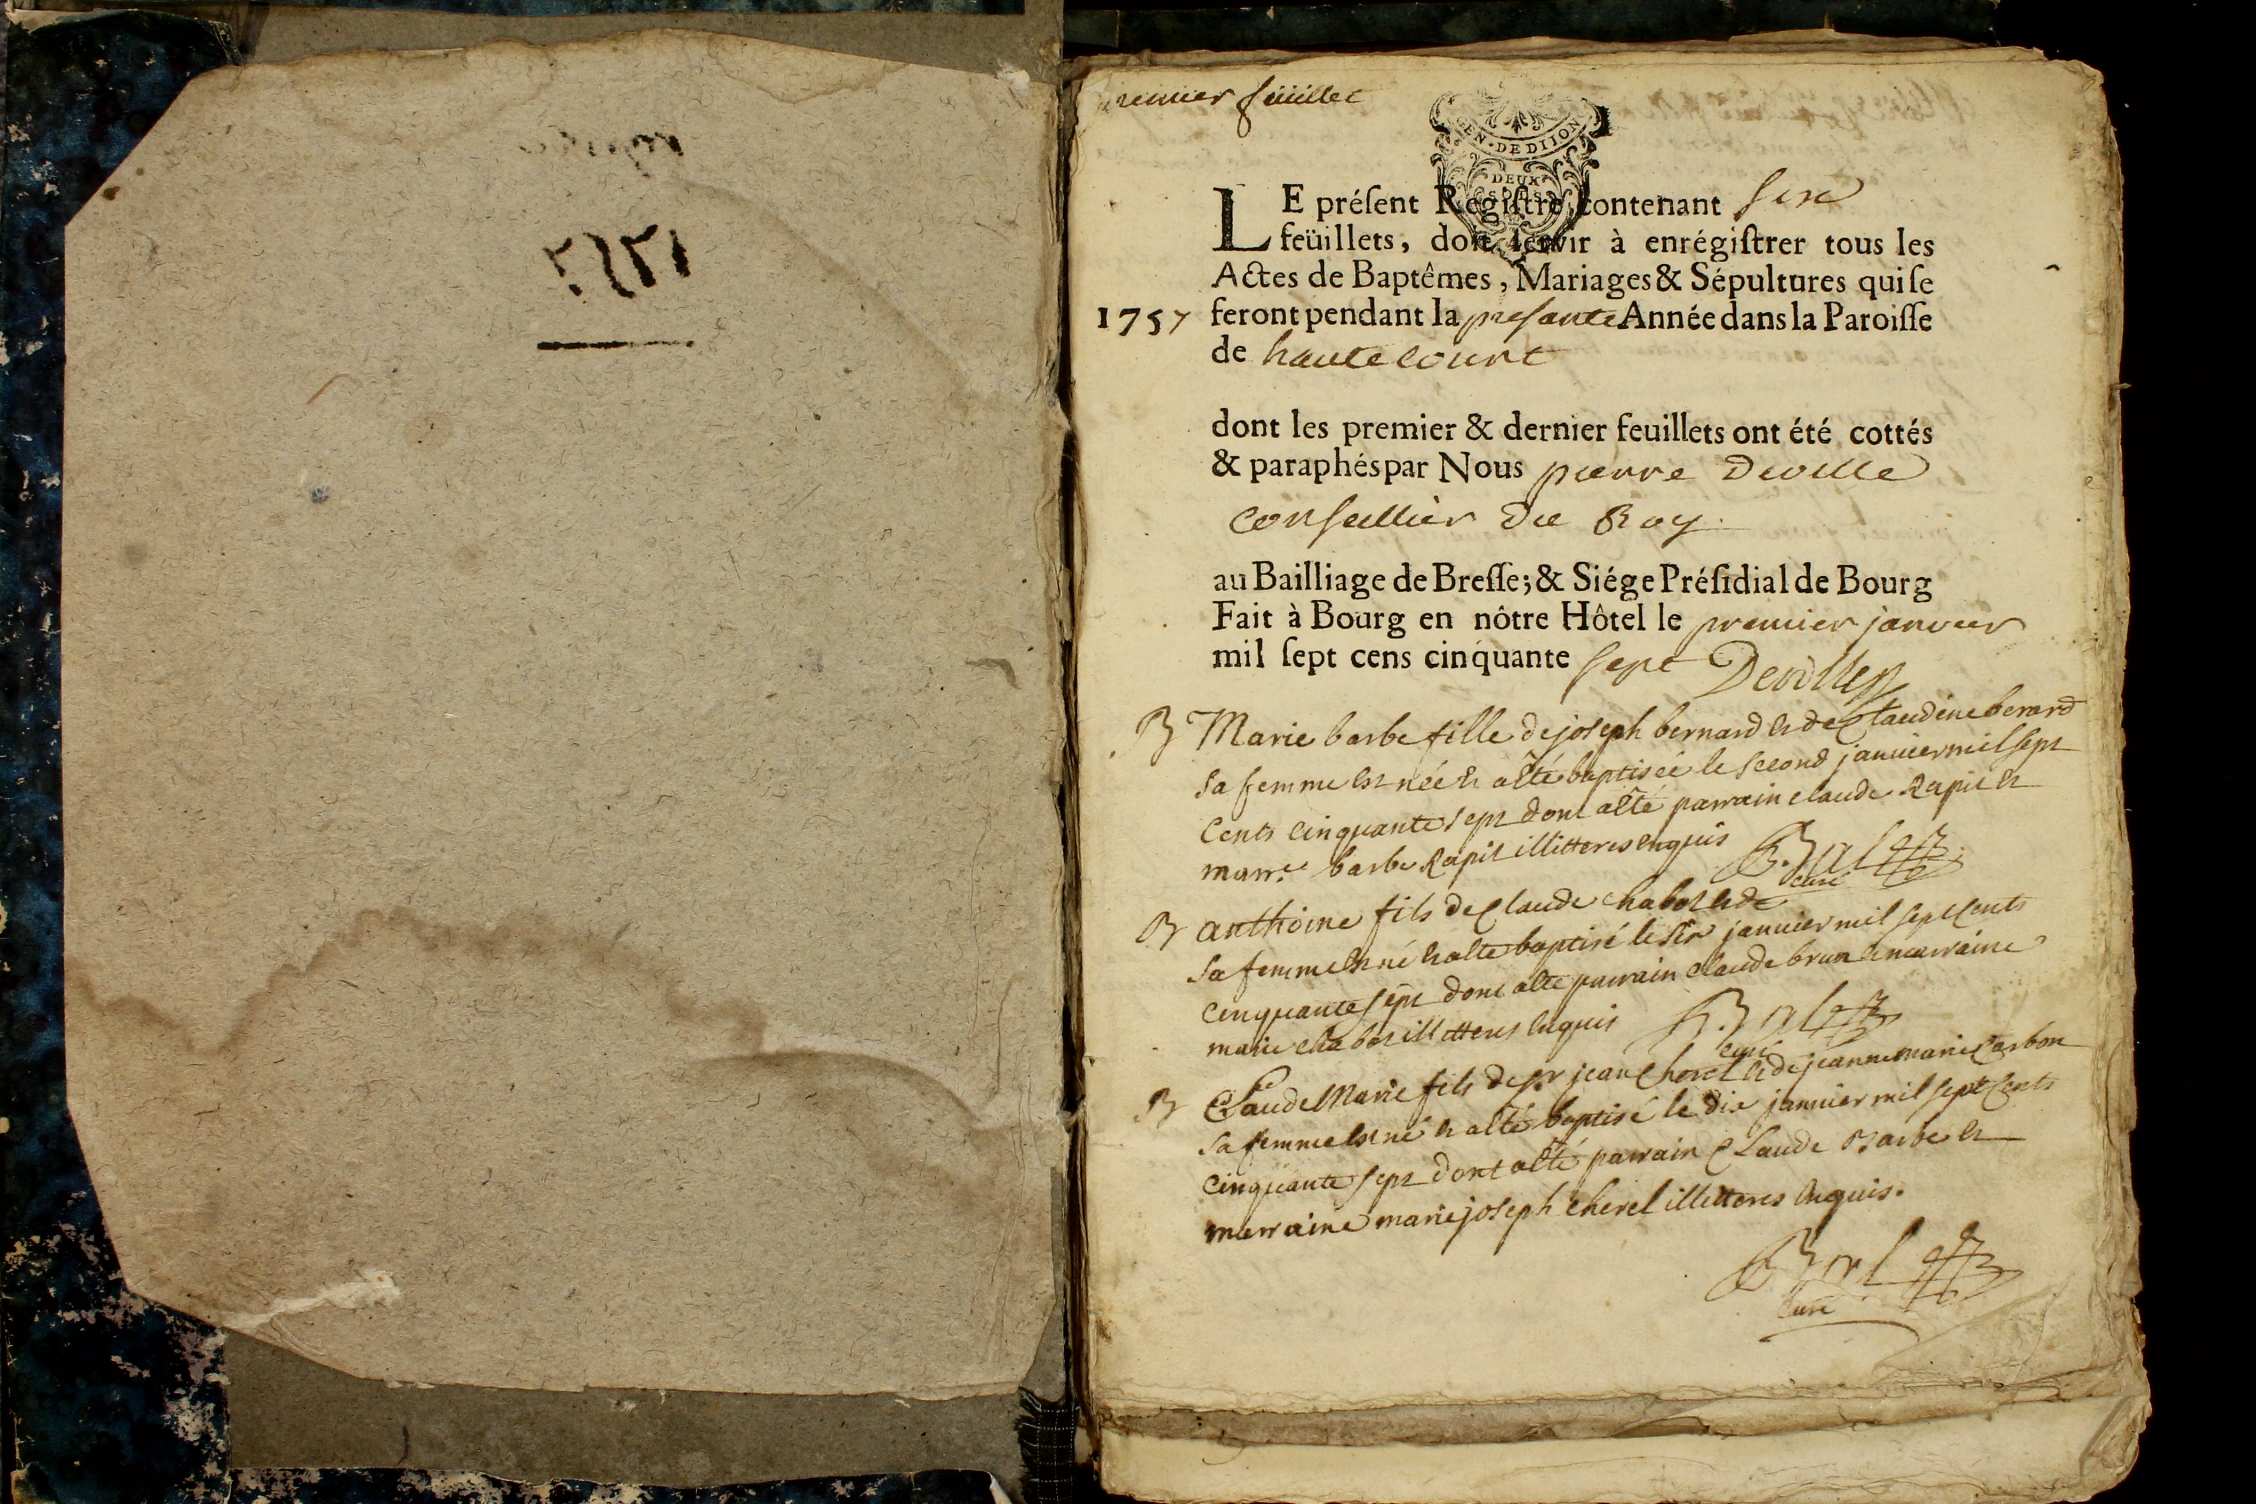 premier feüillet
GEN. DE DIJON
DEUX
SOLS
LE préſent Regiſtre, contenant six
feüillets, doit ſervir à enrégiſtrer tous les
Actes de Baptêmes, Mariages & Sépultures qui ſe
1757 feront pendant la presante Année dans la Paroiſſe
de hautecourt
dont les premier & dernier feuillets ont été cottés
& paraphés par Nous pierre Deville
Conseillier du Roy
au Bailliage de Breſſe; & Siége Préſidial de Bourg
Fait à Bourg en nôtre Hôtel le premier janvier
mil ſept cens cinquante sept Deville
B Marie barbe fille de joseph bernard et de Claudine berard
sa femme est née et a été baptisée le second januier mil sept
Cents cinquante sept dont a été parrain claude Rapit et
marr.e barbe Rapit illitteres enquis
curé
B anthoine fils de Claude chabot et de
sa femme est né et a été baptisé le six januier mil sept Cents
cinquante sept dont a été parrain Claude brun et marraine
marie chabot illitteres enquis
curé
B Claude Marie fils de sr jean Cherel et de jeanne marie Carbon
sa femme est né et a été baptisé le dix januier mil sept Cents
cinquante sept dont a été parrain Claude Barbe et
marraine marie joseph cherel illitteres enquis.
curé